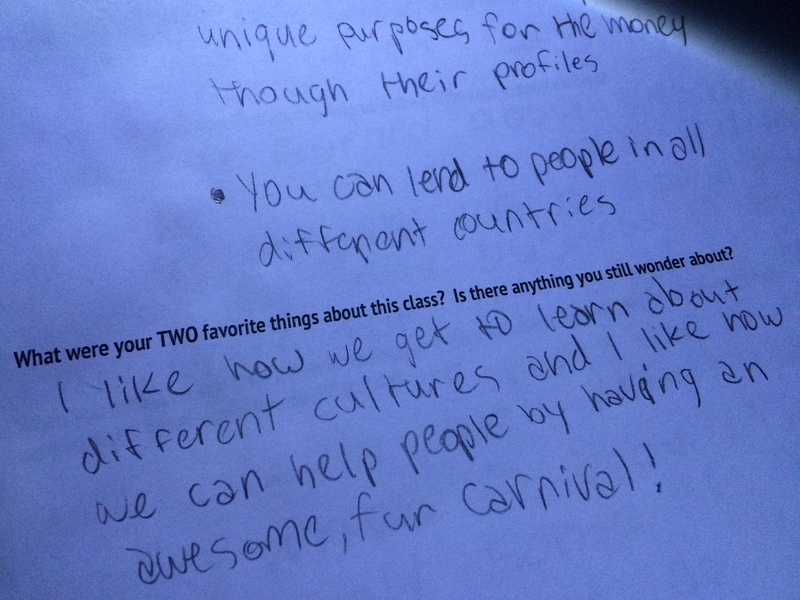 unique purposes for the money
though their profiles
• You can lend to people in all
different countries
What were your TWO favorite things about this class? Is there anything you still wonder about?
I like how we get to learn about
different cultures and I like how
we can help people by having an
awesome, fun carnival!